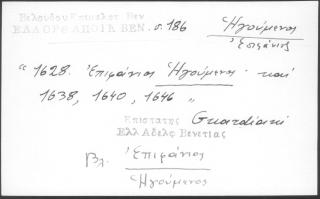 Βελούδου Επισκεπ Βεν
ΕΛΛ ΟΡΘ ΑΠΟΙΚ ΒΕΝ. σ. 186
Ἡγούμενος
Ἐπιφάνιος
"1628. Ἐπιφάνιος Ἡγούμενος. καί
1638, 1640, 1646"
Επιστατης Guardiani
Ελλ Αδελφ Βενετιας
Βλ. Ἐπιφάνιος
Ἡγούμενος